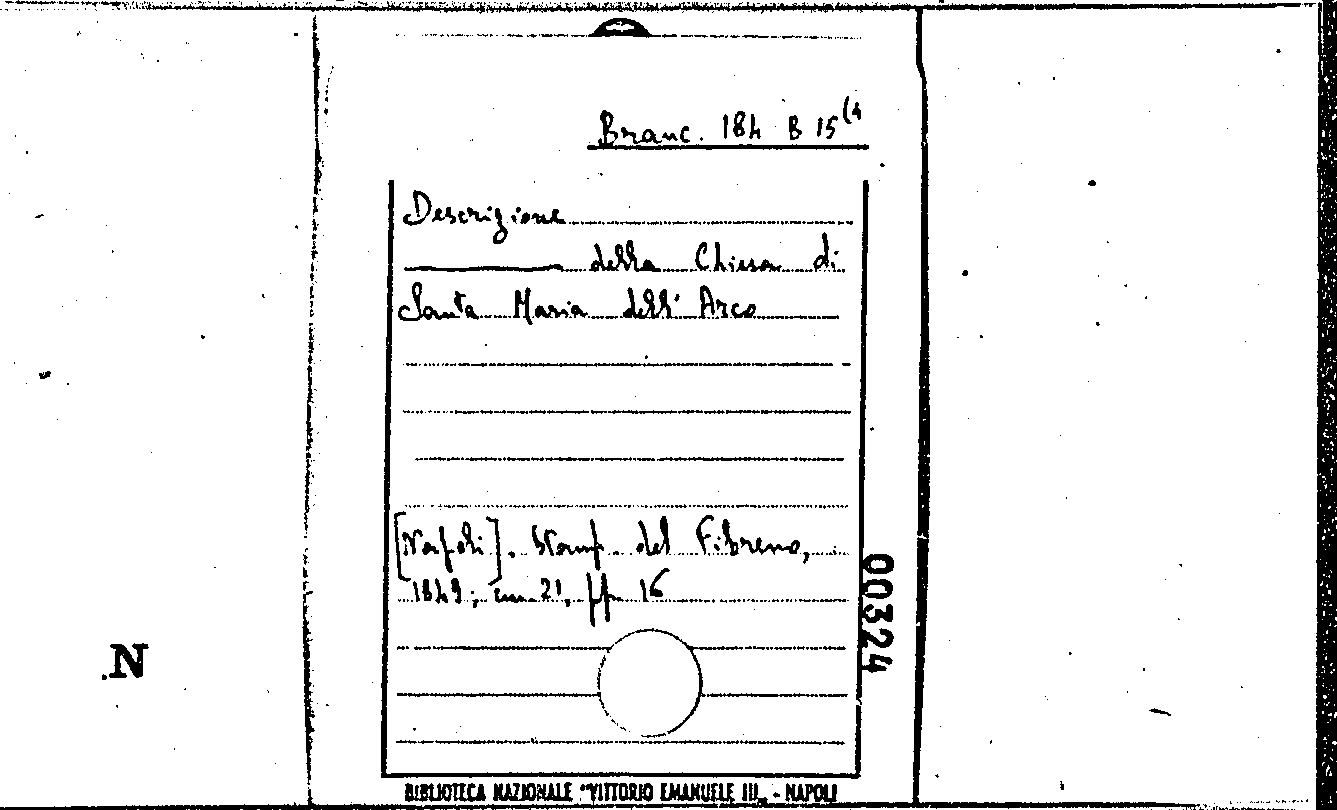 Branc. 184 B 15(4
Descrizione
della Chiesa di
Santa Maria dell' Arco
[Napoli]. Stamp. del Fibreno,
1849; cm. 21, pp. 16
00324
.N
BIBLIOTECA NAZIONALE "VITTORIO EMANUELE III„ - NAPOLI